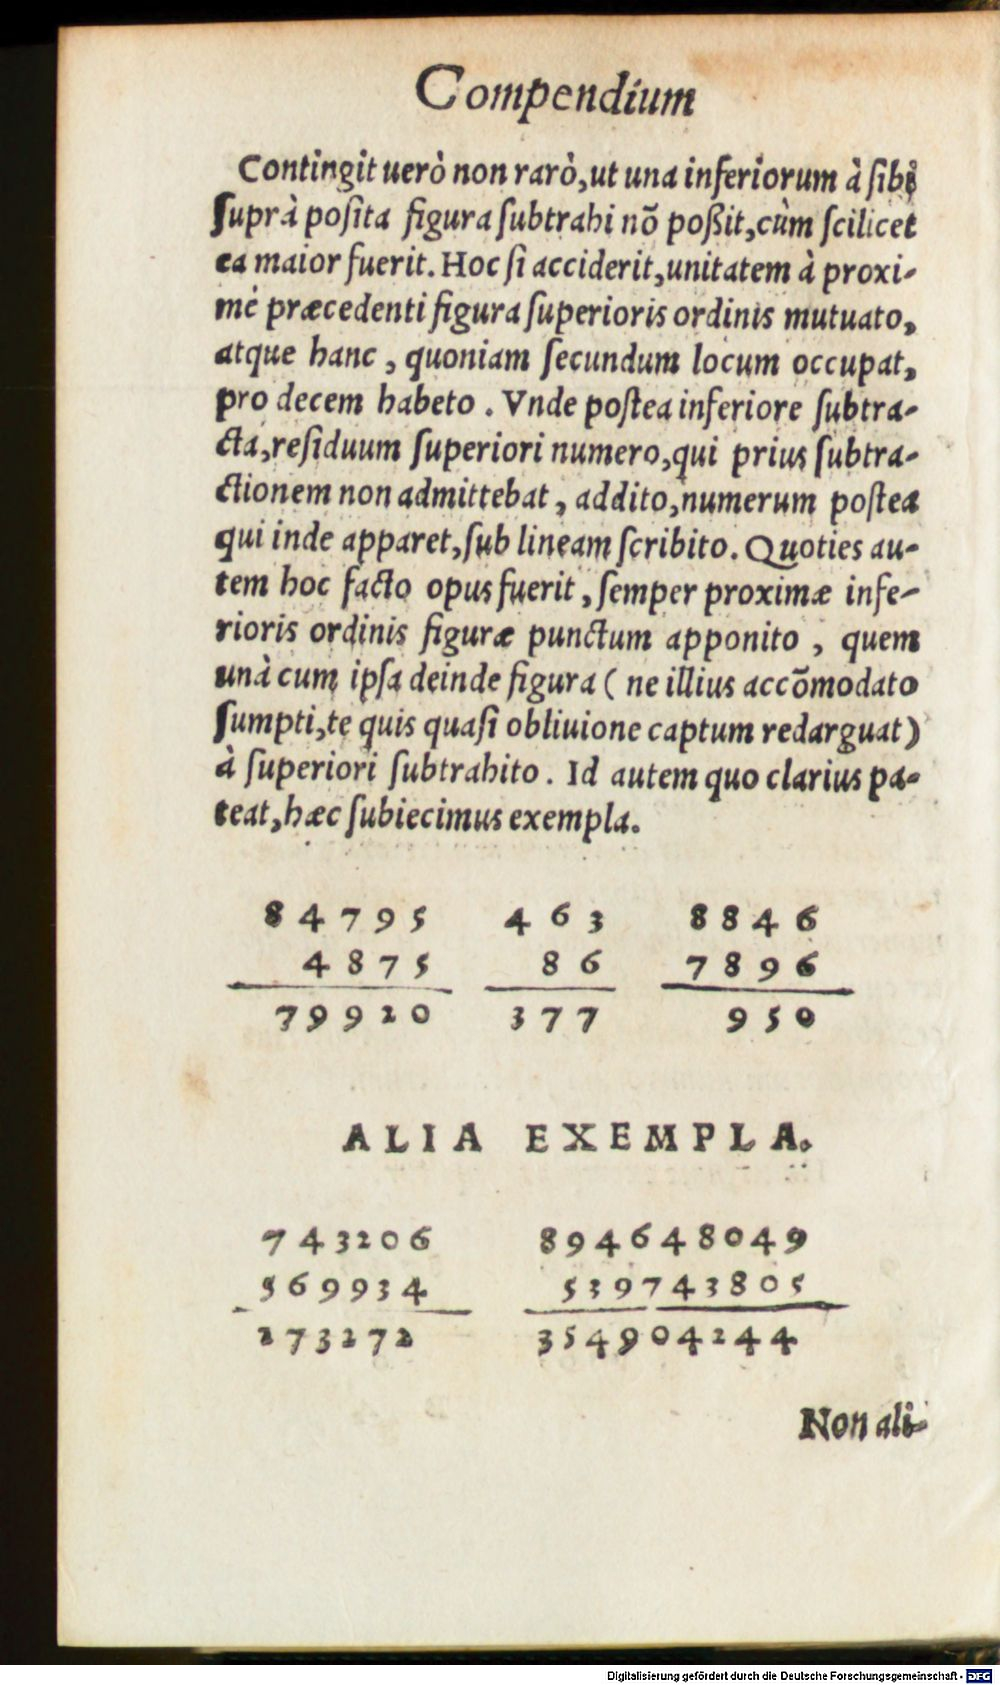 Compendium
Contingit uerò non rarò, ut una inferiorum à ſibi
ſuprà poſita figura ſubtrahi nõ poßit, cùm ſcilicet
ea maior fuerit. Hoc ſi acciderit, unitatem à proxi-
mè præcedenti figura ſuperioris ordinis mutuato,
atque hanc, quoniam ſecundum locum occupat,
pro decem habeto. Vnde poſtea inferiore ſubtra-
cta, reſiduum ſuperiori numero, qui prius ſubtra-
ctionem non admittebat, addito, numerum poſtea
qui inde apparet, ſub lineam ſcribito. Quoties au-
tem hoc facto opus fuerit, ſemper proximæ infe-
rioris ordinis figuræ punctum apponito, quem
unà cum ipſa deinde figura (ne illius accõmodato
ſumpti, te quis quaſi obliuione captum redarguat)
à ſuperiori ſubtrahito. Id autem quo clarius pa-
teat, hæc ſubiecimus exempla.
84795 463 8846
4875 86 7896
79920 377 950
ALIA EXEMPLA.
743206 894648049
569934 539743805
273272 354904244
Non ali-
Digitalisierung gefördert durch die Deutsche Forschungsgemeinschaft - DFG